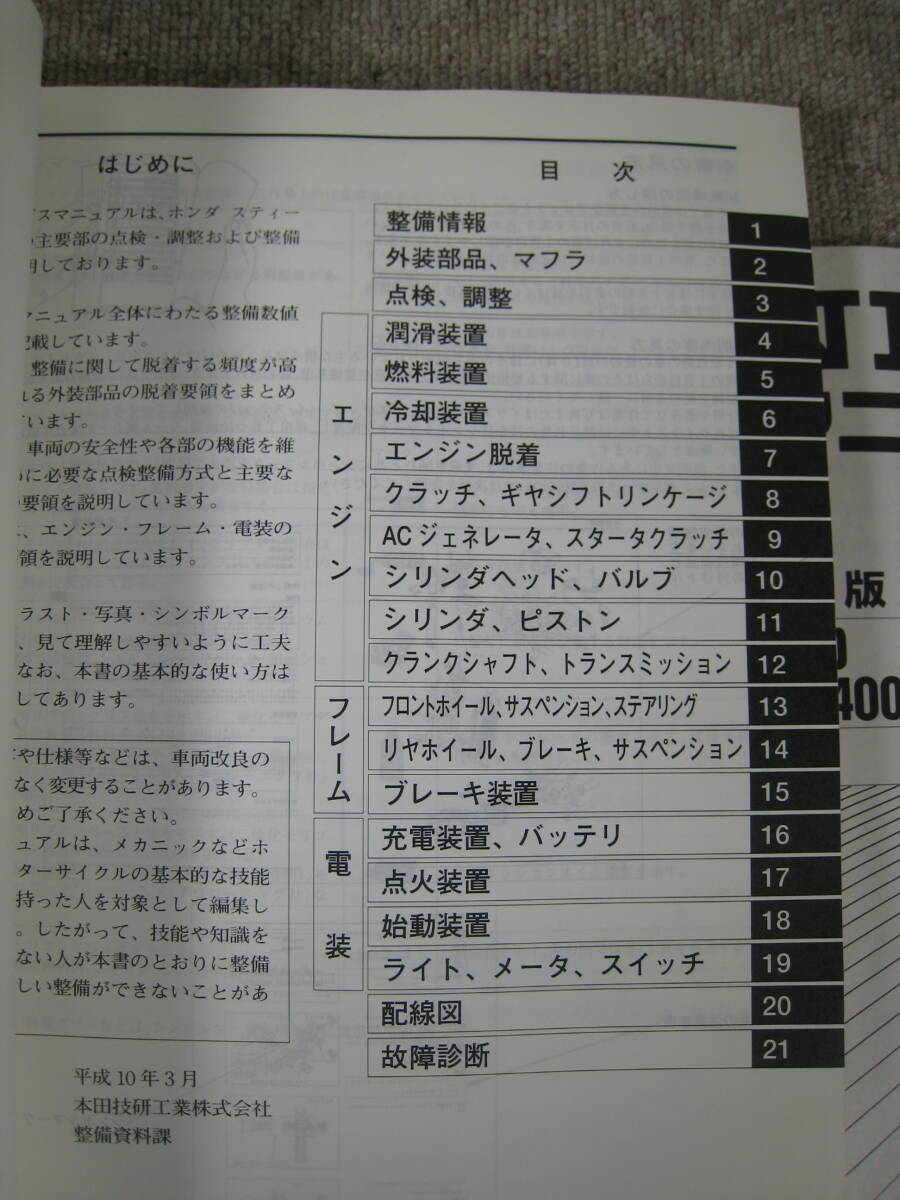 はじめに
スマニュアルは、ホンダ スティー
主要部の点検・調整および整備
明しております。
マニュアル全体にわたる整備数値
記載しています。
整備に関して脱着する頻度が高
れる外装部品の脱着要領をまとめ
ています。
車両の安全性や各部の機能を維
めに必要な点検整備方式と主要な
要領を説明しています。
エンジン・フレーム・電装の
領を説明しています。
ラスト・写真・シンボルマーク
、見て理解しやすいように工夫
なお、本書の基本的な使い方は
してあります。
や仕様等などは、車両改良の
なく変更することがあります。
めご了承ください。
ュアルは、メカニックなどホ
ターサイクルの基本的な技能
持った人を対象として編集し
。したがって、技能や知識を
ない人が本書のとおりに整備
しい整備ができないことがあ
平成10年3月
本田技研工業株式会社
整備資料課
目 次
整備情報 1
外装部品、マフラ 2
点検、調整 3
エンジン
潤滑装置 4
燃料装置 5
冷却装置 6
エンジン脱着 7
クラッチ、ギヤシフトリンケージ 8
ACジェネレータ、スタータクラッチ 9
シリンダヘッド、バルブ 10
シリンダ、ピストン 11
クランクシャフト、トランスミッション 12
フレーム
フロントホイール、サスペンション、ステアリング 13
リヤホイール、ブレーキ、サスペンション 14
ブレーキ装置 15
電装
充電装置、バッテリ 16
点火装置 17
始動装置 18
ライト、メータ、スイッチ 19
配線図 20
故障診断 21
版
400